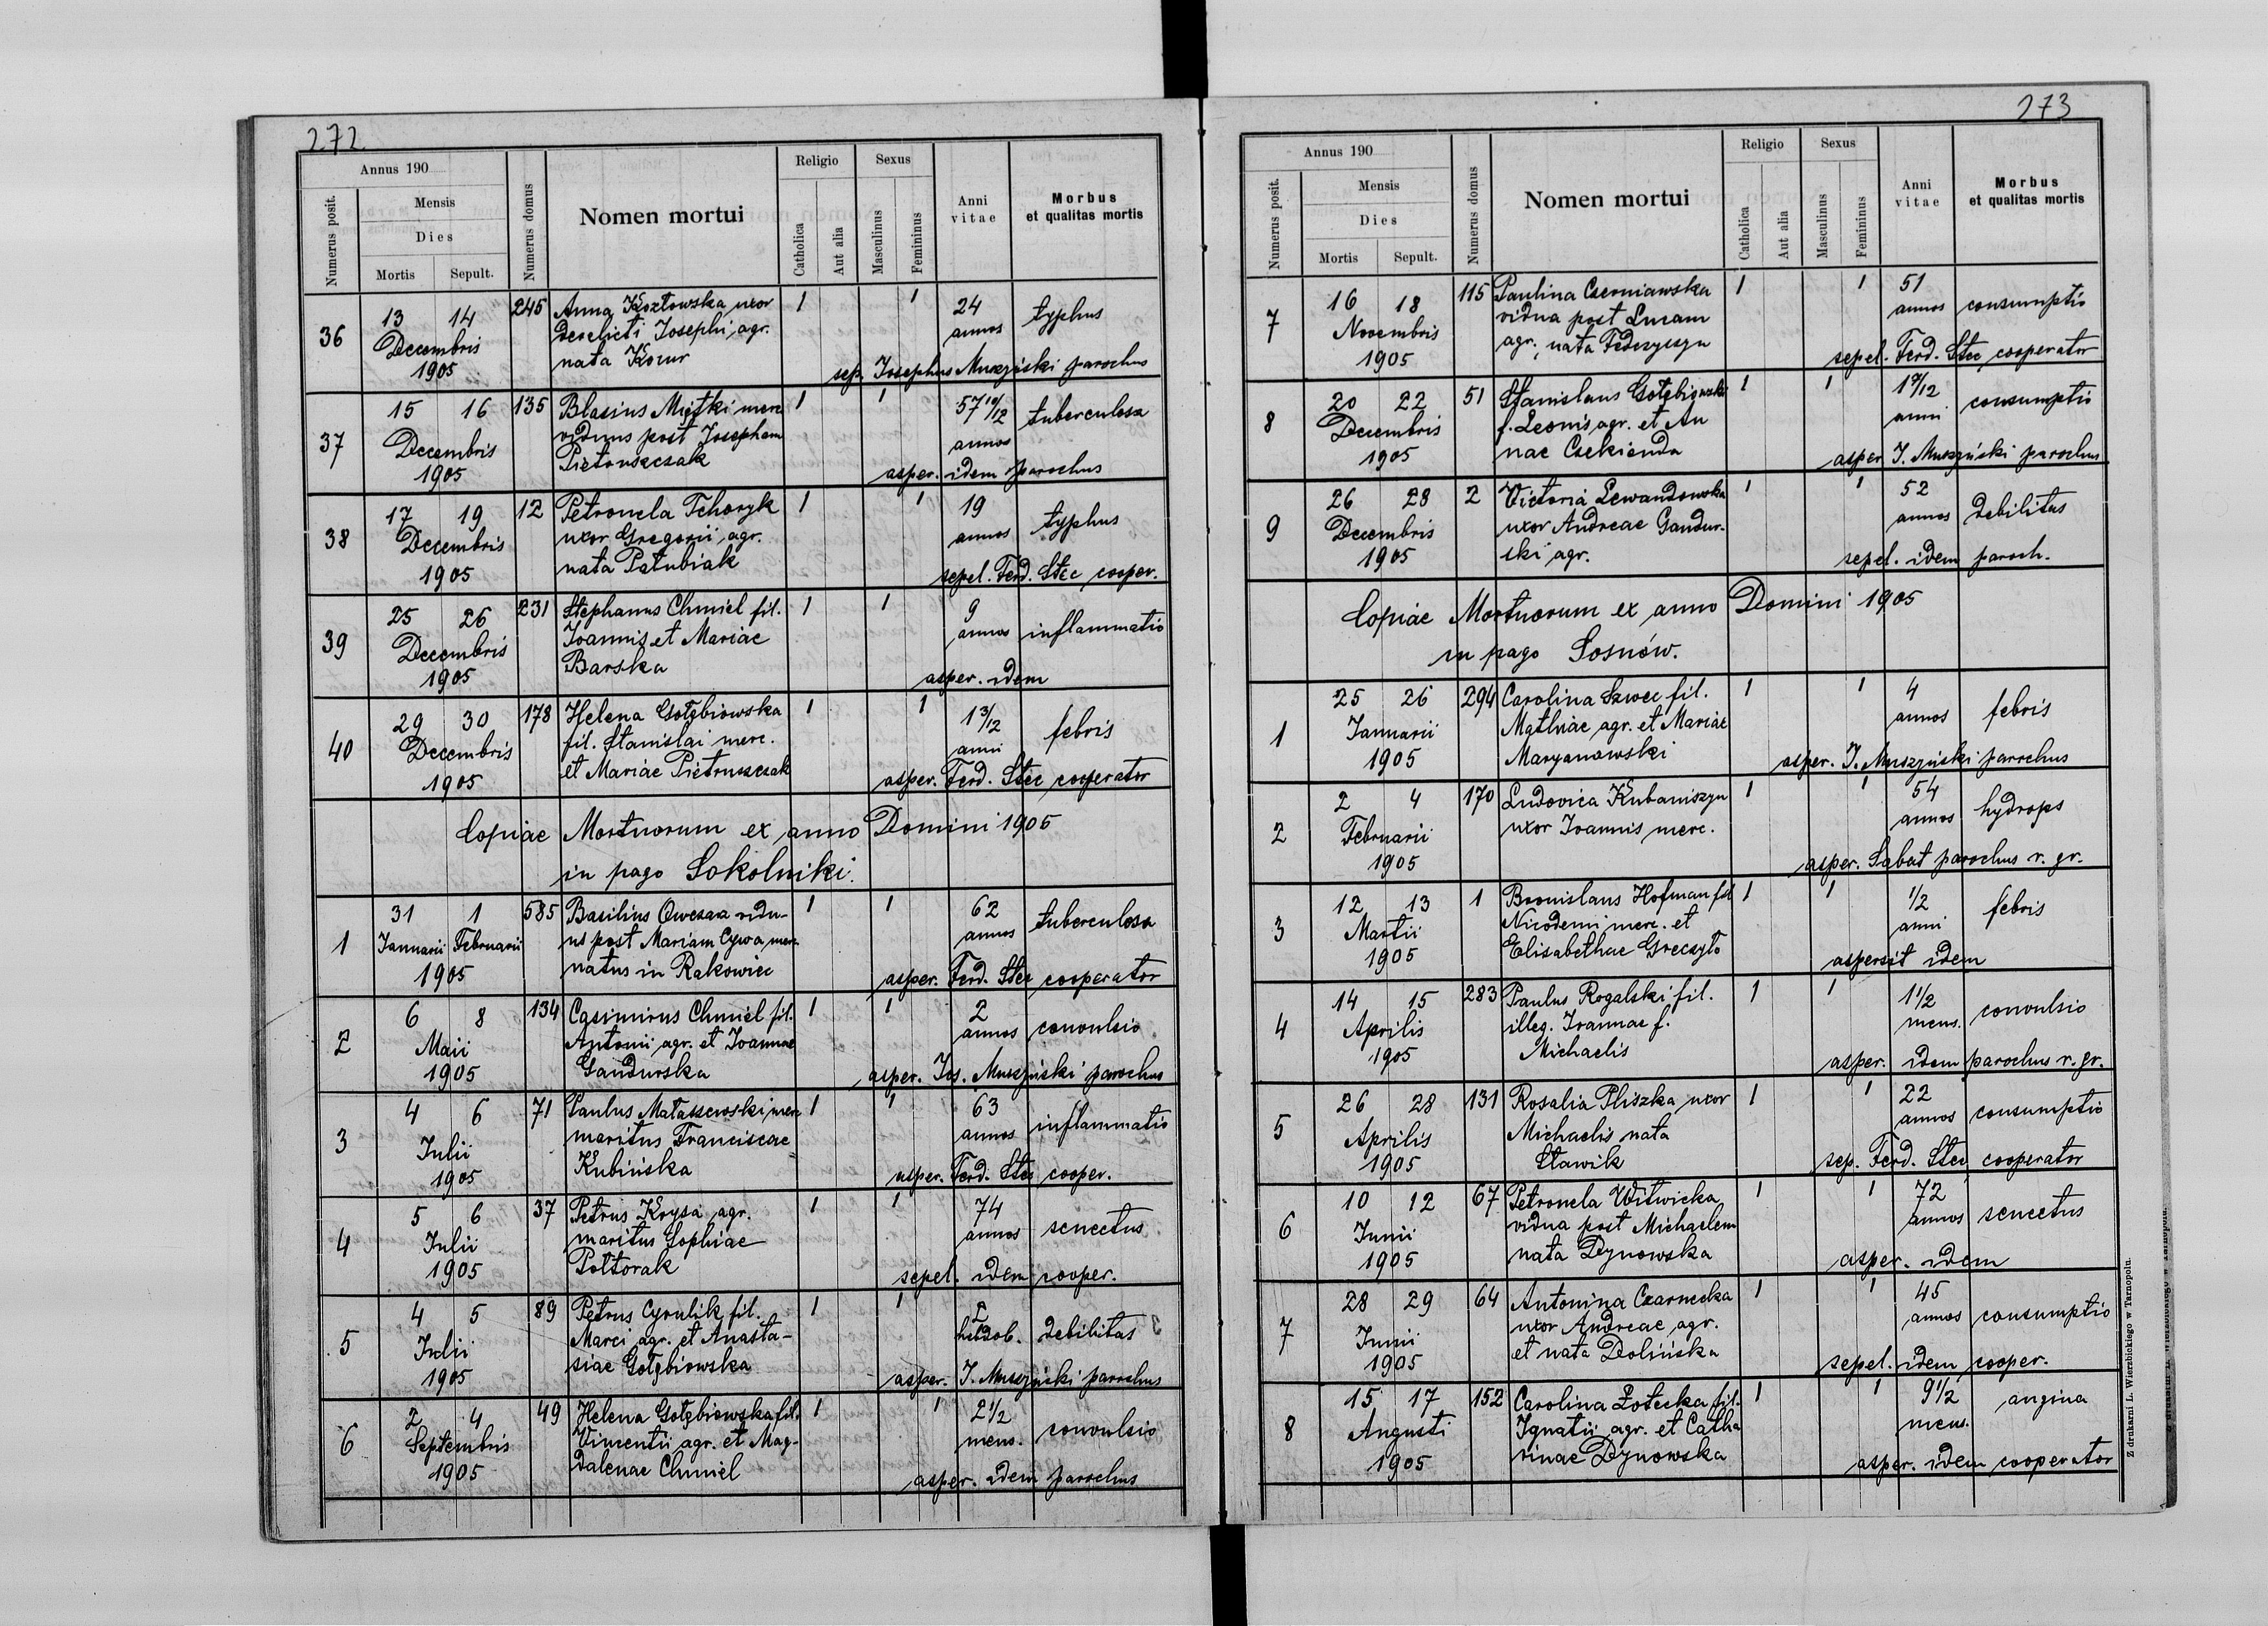 272
Annus 190
Numerus posit.
Mensis
Dies
Mortis Sepult.
Numerus domus
Nomen mortui
Religio
Catholica
Aut alia
Sexus
Masculinus
Femininus
Anni vitae
Morbus
et qualitas mortis
36 13 14 Decembris 1905 245 Anna Kozłowska uxor 1 1 24 annos typhus
derelicti Josephi, agr.
nata Kozur
sep. Josephus Muszyński parochus
37 15 16 Decembris 1905 135 Blasius Miętki merc 1 1 57 10/12 annos tuberculosa
viduus post Josepham
Pietruszczak
asper. idem parochus
38 17 19 Decembris 1905 12 Petronela Tchoryk 1 1 19 annos typhus
uxor Gregorii, agr.
nata Patubiak
sepel. Ferd. Stec cooper.
39 25 26 Decembris 1905 231 Stephanus Chmiel fil. 1 1 9 annos inflammatio
Joannis et Mariae
Barska
asper. idem
40 29 30 Decembris 1905 178 Helena Gołębiowska 1 1 1 3/12 anni febris
fil. Stanislai merc.
et Mariae Pietruszczak
asper. Ferd. Stec cooperator
Copiae Mortuorum ex anno Domini 1905
in pago Sokolniki.
1 31 Januarii 1 Februarii 1905 585 Basilius Owczar vidu- 1 1 62 annos tuberculosa
us post Mariam Cywa merc.
natus in Rakowiec
asper. Ferd. Stec cooperator
2 6 8 Maii 1905 134 Casimirus Chmiel fil. 1 1 2 annos convulsio
Antonii agr. et Joannae
Gandurska
asper. Jos. Muszyński parochus
3 4 6 Julii 1905 71 Paulus Mataszewski merc 1 1 63 annos inflammatio
maritus Franciscae
Kubińska
asper. Ferd. Stec cooper.
4 5 6 Julii 1905 37 Petrus Krysa agr. 1 1 74 annos senectus
maritus Sophiae
Półtorak
sepel. idem cooper.
5 4 5 Julii 1905 89 Petrus Cyrulik fil. 1 1 2 hebdob. debilitas
Marci agr. et Anasta-
siae Gołębiowska
asper. J. Muszyński parochus
6 2 4 Septembris 1905 49 Helena Gołębiowska fil. 1 1 2 1/2 mens. convulsio
Vincentii agr. et Mag-
dalenae Chmiel
asper. idem parochus
273
Annus 190
Numerus posit.
Mensis
Dies
Mortis Sepult.
Numerus domus
Nomen mortui
Religio
Catholica
Aut alia
Sexus
Masculinus
Femininus
Anni vitae
Morbus
et qualitas mortis
7 16 18 Novembris 1905 115 Paulina Czerniawska 1 1 51 annos consumptio
vidua post Lucam
agr., nata Fedczyszyn
sepel. Ferd. Stec cooperator
8 20 22 Decembris 1905 51 Stanislaus Gołębiowski 1 1 1 7/12 anni consumptio
f. Leonis agr. et An
nae Czekienda
asper J. Muszyński parochus
9 26 28 Decembris 1905 2 Victoria Lewandowska 1 1 52 annos debilitas
uxor Andreae Gandur-
ski agr.
sepel. idem paroch.
Copiae Mortuorum ex anno Domini 1905
in pago Sosnów.
1 25 26 Januarii 1905 294 Carolina Szwec fil. 1 1 4 annos febris
Mathiae agr. et Mariae
Maryanowski
asper. J. Muszyński parochus
2 2 4 Februarii 1905 170 Ludovica Kubaniszyn 1 1 54 annos hydrops
uxor Joannis merc.
asper. Sabat parochus r. gr.
3 12 13 Martii 1905 1 Bronislaus Hofman fil 1 1 1/2 anni febris
Nicodemi merc. et
Elisabethae Greczyło
aspersit idem
4 14 15 Aprilis 1905 283 Paulus Rogalski fil. 1 1 1 1/2 mens. convulsio
illeg. Joannae f.
Michaelis
asper. idem parochus r. gr.
5 26 28 Aprilis 1905 131 Rosalia Pliszka uxor 1 1 22 annos consumptio
Michaelis nata
Stawik
sep. Ferd. Stec cooperator
6 10 12 Junii 1905 67 Petronela Witwicka 1 1 72 annos senectus
vidua post Michaelem
nata Dynowska
asper. idem
7 28 29 Junii 1905 64 Antonina Czarnecka 1 1 45 annos consumptio
uxor Andreae agr.
et nata Dolińska
sepel. idem cooper.
8 15 17 Augusti 1905 152 Carolina Żołecka fil. 1 1 9 1/2 mens. angina
Ignatii agr. et Catha
rinae Dynowska
asper. idem cooperator
Z drukarni L. Wierzbickiego w Tarnopolu.